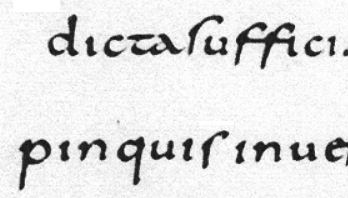 dictasuffici.
pinquis inue